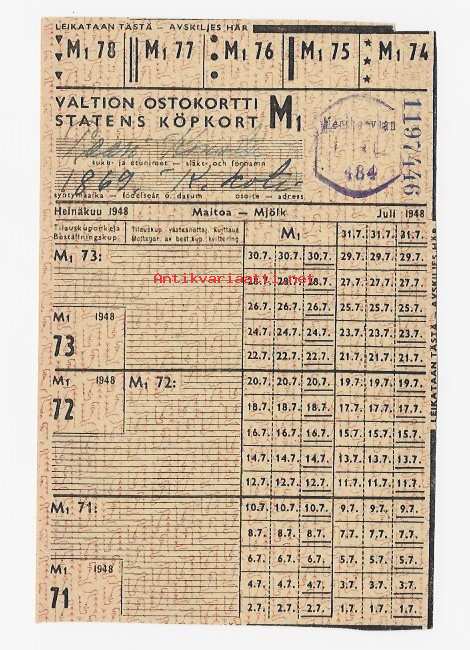 LEIKATAAN TÄSTÄ – AVSKILJES HÄR
M1 78 M1 77 M1 76 M1 75 M1 74
VALTION OSTOKORTTI M1
STATENS KÖPKORT
1197446
484
suku- ja etunimet — släkt- och förnamn
1869
syntymäaika — födelseår o. datum osoite — adress
Heinäkuu 1948 Maitoa — Mjölk Juli 1948
Tilauskuponkeja Tilauskup. vastaanotto, kuittaus M1 31.7. 31.7. 31.7.
Beställningskup. Mottagn. av best.kup. kvittering
M1 73: 30.7. 30.7. 30.7. 29.7. 29.7. 29.7.
Antikvariaatti.net
28.7. 28.7. 27.7. 27.7. 27.7.
26.7. 26.7. 26.7. 25.7. 25.7. 25.7.
M1 1948 24.7. 24.7. 24.7. 23.7. 23.7. 23.7.
73 22.7. 22.7. 22.7. 21.7. 21.7. 21.7.
M1 1948 M1 72: 20.7. 20.7. 20.7. 19.7. 19.7. 19.7.
72 18.7. 18.7. 18.7. 17.7. 17.7. 17.7.
16.7. 16.7. 16.7. 15.7. 15.7. 15.7.
14.7. 14.7. 14.7. 13.7. 13.7. 13.7.
12.7. 12.7. 12.7. 11.7. 11.7. 11.7.
M1 71: 10.7. 10.7. 10.7. 9.7. 9.7. 9.7.
8.7. 8.7. 8.7. 7.7. 7.7. 7.7.
6.7. 6.7. 6.7. 5.7. 5.7. 5.7.
M1 1948 4.7. 4.7. 4.7. 3.7. 3.7. 3.7.
71 2.7. 2.7. 2.7. 1.7. 1.7. 1.7.
LEIKATAAN TÄSTÄ – AVSKILJES HÄR